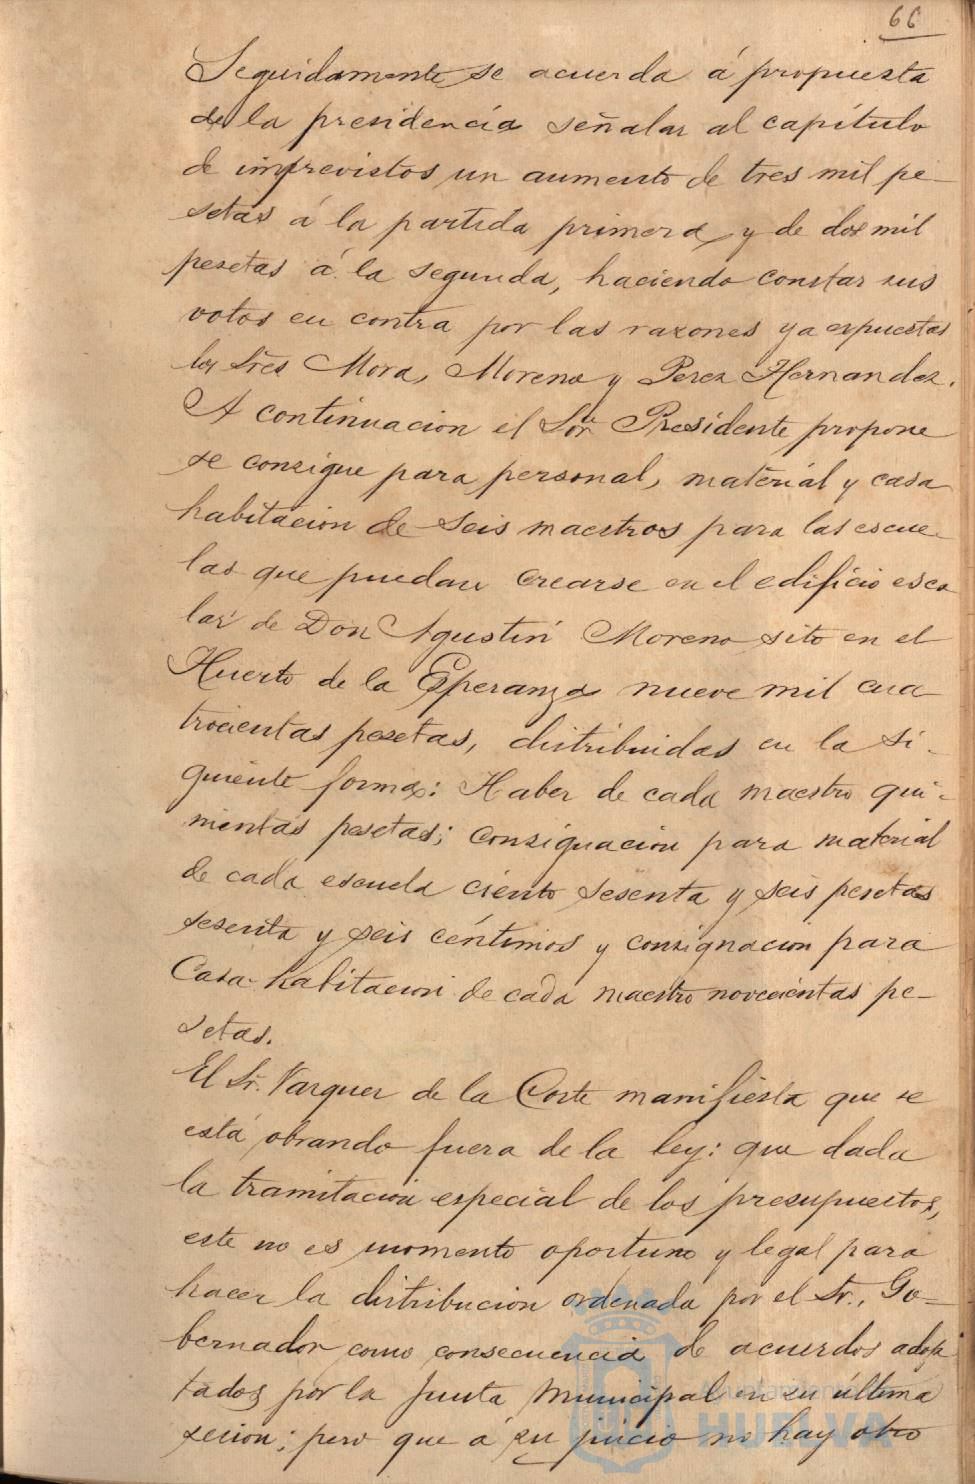 66
Seguidamente se acuerda á propuesta
de la presidencia señalar al capítulo
de imprevistos un aumento de tres mil pe-
setas á la partida primera y de dos mil
pesetas á la segunda, haciendo constar sus
votos en contra por las razones ya expuestas
los Sres Mora, Moreno y Perez Hernandez.
A continuacion el Sor. Presidente propone
se consigne para personal, material y casa
habitacion de seis maestros para las escue-
las que puedan crearse en el edificio esco
lar de Don Agustin Moreno sito en el
Huerto de la Esperanza nueve mil cua
trocientas pesetas, distribuidas en la si-
guiente forma: Haber de cada maestro qui-
nientas pesetas; consignacion para material
de cada escuela ciento sesenta y seis pesetas
sesenta y seis céntimos y consignacion para
Casa-habitacion de cada maestro novecientas pe-
setas.
El Sr. Vazquez de la Corte manifiesta que se
está obrando fuera de la ley: que dada
la tramitacion especial de los presupuestos,
este no es momento oportuno y legal para
hacer la distribucion ordenada por el Sr. Go-
bernador como consecuencia de acuerdos adop
tados por la Junta Municipal en su última
sesion; pero que á su juicio no hay otro
Ayuntamiento
HUELVA